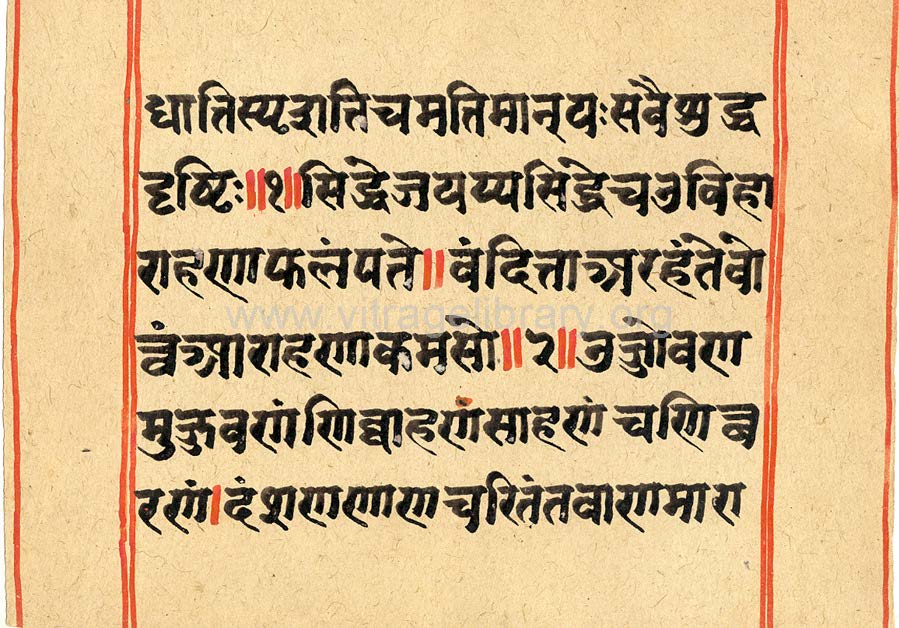 ध्यातिस्पृशतिचमतिमान्यःसवैशुद्ध
दृष्टिः॥१॥सिद्धेजयप्पसिद्धेचउविहा
राहणाफलंपत्ते॥वंदित्ताअरहंतेवो
च्छंआराहणाकमसो॥२॥उज्जोवण
मुज्जवणंणिव्वाहणंसाहणंच
रणं।दंशणणाणचरितंतवाणमारा
www.vitragelibrary.org